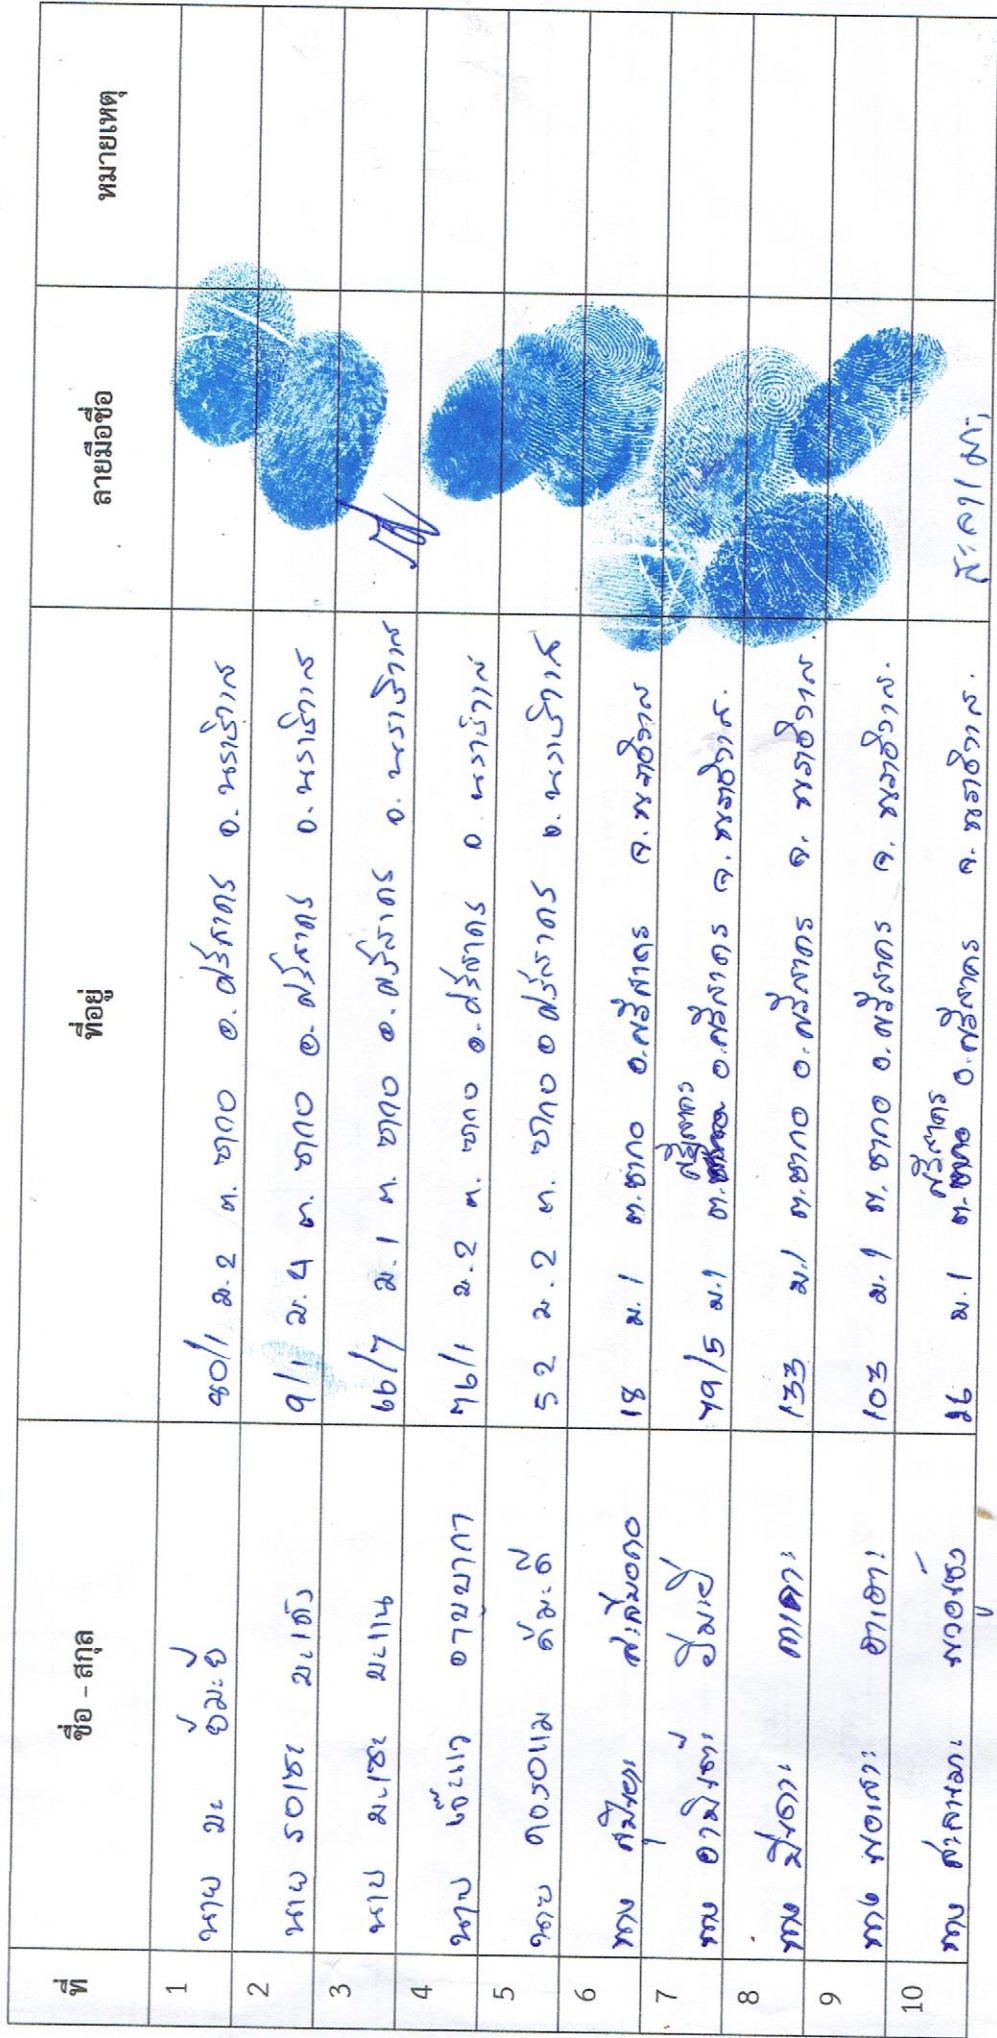 ที่ ชื่อ - สกุล ที่อยู่ ลายมือชื่อ หมายเหตุ
1 นาย มะ ยีมะยิ 80/1 ม.2 ต. ซากอ อ. ศรีสาคร จ. นราธิวาส
2 นาย รอเซะ มะเด็ง 9/1 ม.4 ต. ซากอ อ. ศรีสาคร จ. นราธิวาส
3 นาย มะเซะ มะแน 66/7 ม.1 ต. ซากอ อ. ศรีสาคร จ. นราธิวาส
4 นาย เจ๊ะแว อาบูบากา 76/1 ม.2 ต. ซากอ อ. ศรีสาคร จ นราธิวาส
5 นาย ดอรอแม ดือมะดี 52 ม.2 ต. ซากอ อ ศรีสาคร จ. นราธิวาส
6 นาง สะลือมอดอ 18 ม.1 ต.ซากอ อ.ศรีสาคร จ. นราธิวาส
7 นาง อามีเน๊าะ 79/5 ม.1 ต.ศรีสาคร อ.ศรีสาคร จ. นราธิวาส.
8 นาง มีนดาวะ 133 ม.1 ต.ซากอ อ.ศรีสาคร จ. นราธิวาส.
9 นาง พอเสาะ อาเฮาะ 103 ม.1 ต.ซากอ อ.ศรีสาคร จ. นราธิวาส.
10 นาง สะลามะ 26 ม.1 ต.ศรีสาคร อ.ศรีสาคร จ. นราธิวาส. สะลามะ